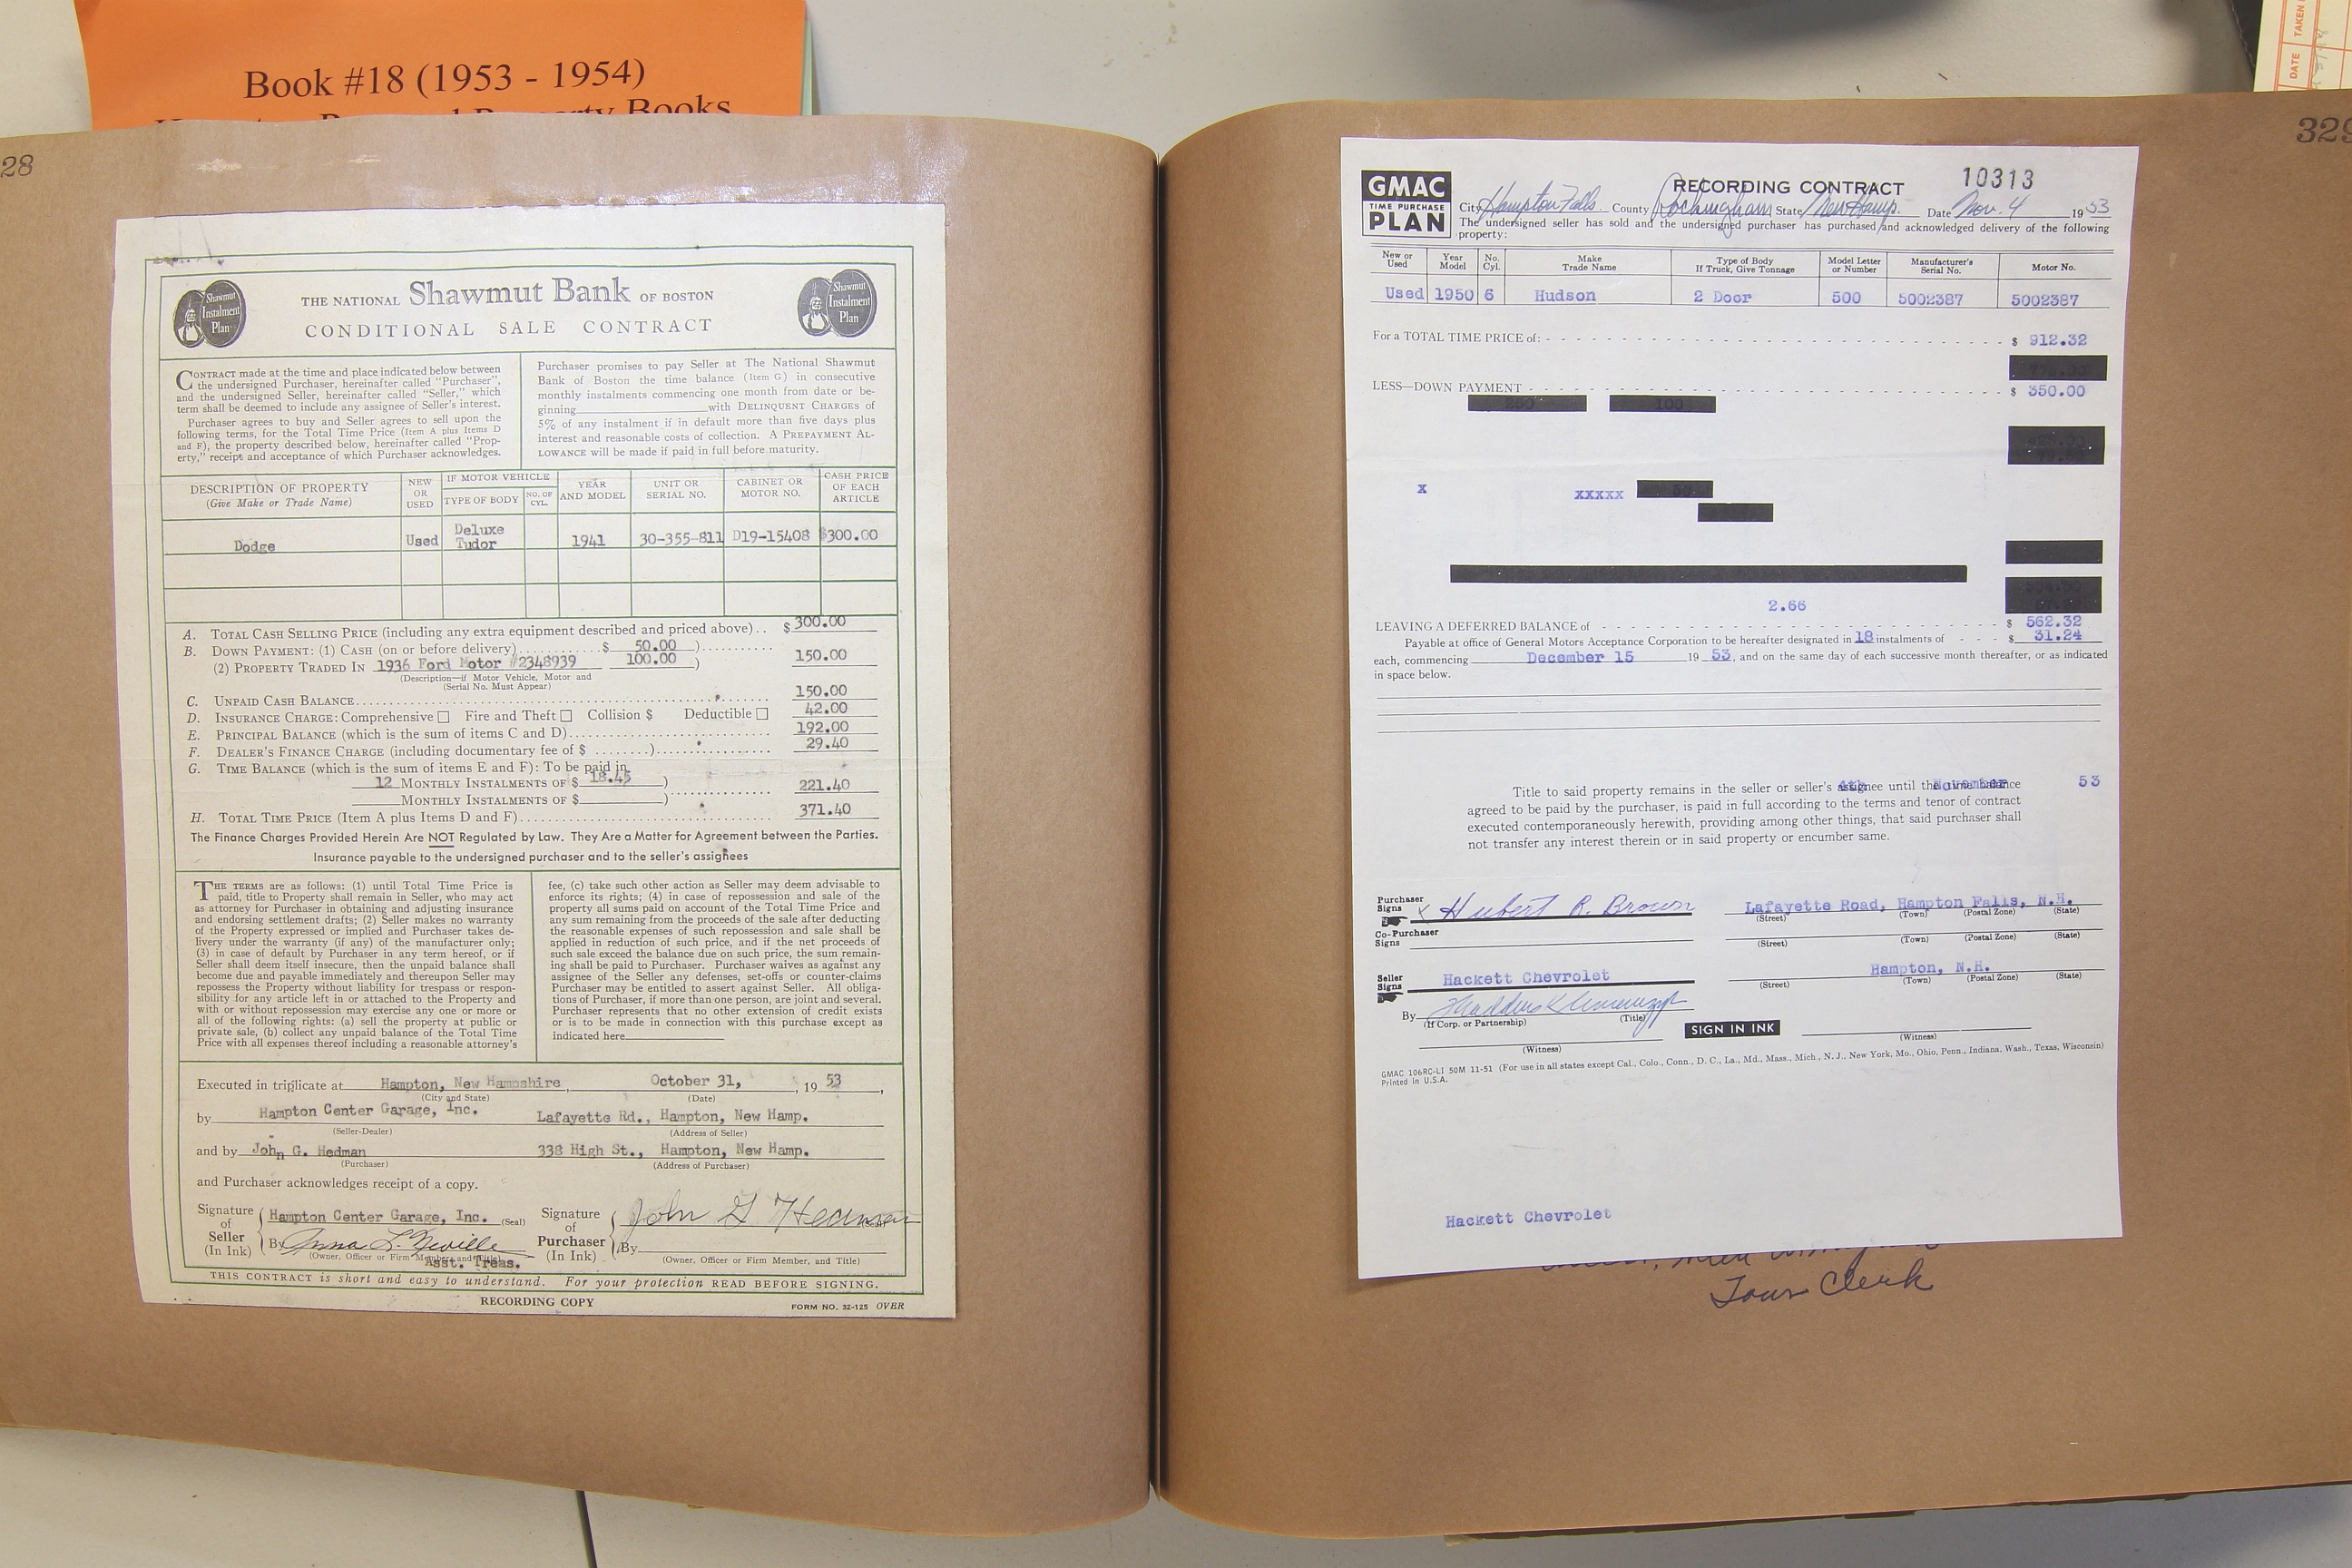 Book #18 (1953 - 1954)
Property Books
DATE TAKEN
28
Shawmut Instalment Plan
THE NATIONAL Shawmut Bank OF BOSTON
CONDITIONAL SALE CONTRACT
Shawmut Instalment Plan
CONTRACT made at the time and place indicated below between
the undersigned Purchaser, hereinafter called "Purchaser",
and the undersigned Seller, hereinafter called "Seller," which
term shall be deemed to include any assignee of Seller's interest.
Purchaser agrees to buy and Seller agrees to sell upon the
following terms, for the Total Time Price (Item A plus Items D
and F), the property described below, hereinafter called "Prop-
erty," receipt and acceptance of which Purchaser acknowledges.
Purchaser promises to pay Seller at The National Shawmut
Bank of Boston the time balance (Item G) in consecutive
monthly instalments commencing one month from date or be-
ginning with DELINQUENT CHARGES of
5% of any instalment if in default more than five days plus
interest and reasonable costs of collection. A PREPAYMENT AL-
LOWANCE will be made if paid in full before maturity.
DESCRIPTION OF PROPERTY (Give Make or Trade Name) NEW OR USED IF MOTOR VEHICLE TYPE OF BODY NO. OF CYL. YEAR AND MODEL UNIT OR SERIAL NO. CABINET OR MOTOR NO. CASH PRICE OF EACH ARTICLE
Dodge Used Deluxe Tudor 1941 30-355-811 D19-15408 $300.00
A. TOTAL CASH SELLING PRICE (including any extra equipment described and priced above).. $ 300.00
B. DOWN PAYMENT: (1) CASH (on or before delivery) $ 50.00 )
(2) PROPERTY TRADED IN 1936 Ford Motor #2348939 100.00 ) 150.00
(Description—if Motor Vehicle, Motor and
(Serial No. Must Appear)
C. UNPAID CASH BALANCE 150.00
D. INSURANCE CHARGE: Comprehensive Fire and Theft Collision $ Deductible 42.00
E. PRINCIPAL BALANCE (which is the sum of items C and D) 192.00
F. DEALER'S FINANCE CHARGE (including documentary fee of $ ........) 29.40
G. TIME BALANCE (which is the sum of items E and F): To be paid in
12 MONTHLY INSTALMENTS OF $ 18.45 ) 221.40
MONTHLY INSTALMENTS OF $ )
H. TOTAL TIME PRICE (Item A plus Items D and F) 371.40
The Finance Charges Provided Herein Are NOT Regulated by Law. They Are a Matter for Agreement between the Parties.
Insurance payable to the undersigned purchaser and to the seller's assignees
THE TERMS are as follows: (1) until Total Time Price is
paid, title to Property shall remain in Seller, who may act
as attorney for Purchaser in obtaining and adjusting insurance
and endorsing settlement drafts; (2) Seller makes no warranty
of the Property expressed or implied and Purchaser takes de-
livery under the warranty (if any) of the manufacturer only;
(3) in case of default by Purchaser in any term hereof, or if
Seller shall deem itself insecure, then the unpaid balance shall
become due and payable immediately and thereupon Seller may
repossess the Property without liability for trespass or respon-
sibility for any article left in or attached to the Property and
with or without repossession may exercise any one or more or
all of the following rights: (a) sell the property at public or
private sale, (b) collect any unpaid balance of the Total Time
Price with all expenses thereof including a reasonable attorney's
fee, (c) take such other action as Seller may deem advisable to
enforce its rights; (4) in case of repossession and sale of the
property all sums paid on account of the Total Time Price and
any sum remaining from the proceeds of the sale after deducting
the reasonable expenses of such repossession and sale shall be
applied in reduction of such price, and if the net proceeds of
such sale exceed the balance due on such price, the sum remain-
ing shall be paid to Purchaser. Purchaser waives as against any
assignee of the Seller any defenses, set-offs or counter-claims
Purchaser may be entitled to assert against Seller. All obliga-
tions of Purchaser, if more than one person, are joint and several.
Purchaser represents that no other extension of credit exists
or is to be made in connection with this purchase except as
indicated here
Executed in triplicate at Hampton, New Hampshire, October 31, , 19 53 ,
(City and State) (Date)
by Hampton Center Garage, Inc. Lafayette Rd., Hampton, New Hamp.
(Seller-Dealer) (Address of Seller)
and by John G. Hedman 338 High St., Hampton, New Hamp.
(Purchaser) (Address of Purchaser)
and Purchaser acknowledges receipt of a copy.
Signature of Seller (In Ink) Hampton Center Garage, Inc. (Seal)
By Anna L. Neville
(Owner, Officer or Firm Member and Title)
Asst. Treas.
Signature of Purchaser (In Ink) John G Hedman (Seal)
By
(Owner, Officer or Firm Member, and Title)
THIS CONTRACT is short and easy to understand. For your protection READ BEFORE SIGNING.
RECORDING COPY FORM NO. 32-125 OVER
329
GMAC TIME PURCHASE PLAN
RECORDING CONTRACT 10313
City Hampton Falls County Rockingham State New Hamp. Date Nov. 4 19 53
The undersigned seller has sold and the undersigned purchaser has purchased and acknowledged delivery of the following
property:
New or Used Year Model No. Cyl. Make Trade Name Type of Body If Truck, Give Tonnage Model Letter or Number Manufacturer's Serial No. Motor No.
Used 1950 6 Hudson 2 Door 500 5002387 5002387
For a TOTAL TIME PRICE of: $ 912.32
LESS—DOWN PAYMENT $ 350.00
250 100
x xxxxx
2.66
LEAVING A DEFERRED BALANCE of $ 562.32
Payable at office of General Motors Acceptance Corporation to be hereafter designated in 18 instalments of $ 31.24
each, commencing December 15 19 53, and on the same day of each successive month thereafter, or as indicated
in space below.
Title to said property remains in the seller or seller's assignee until the time balance
4th November 53
agreed to be paid by the purchaser, is paid in full according to the terms and tenor of contract
executed contemporaneously herewith, providing among other things, that said purchaser shall
not transfer any interest therein or in said property or encumber same.
Purchaser Signs x Hubert R. Brown Lafayette Road, Hampton Falls, N.H.
(Street) (Town) (Postal Zone) (State)
Co-Purchaser Signs
(Street) (Town) (Postal Zone) (State)
Seller Signs Hackett Chevrolet Hampton, N.H.
(Street) (Town) (Postal Zone) (State)
By
(If Corp. or Partnership) (Title)
SIGN IN INK
(Witness) (Witness)
GMAC 106RC-LI 50M 11-51 (For use in all states except Cal., Colo., Conn., D. C., La., Md., Mass., Mich., N. J., New York, Mo., Ohio, Penn., Indiana, Wash., Texas, Wisconsin)
Printed in U.S.A.
Hackett Chevrolet
Town Clerk